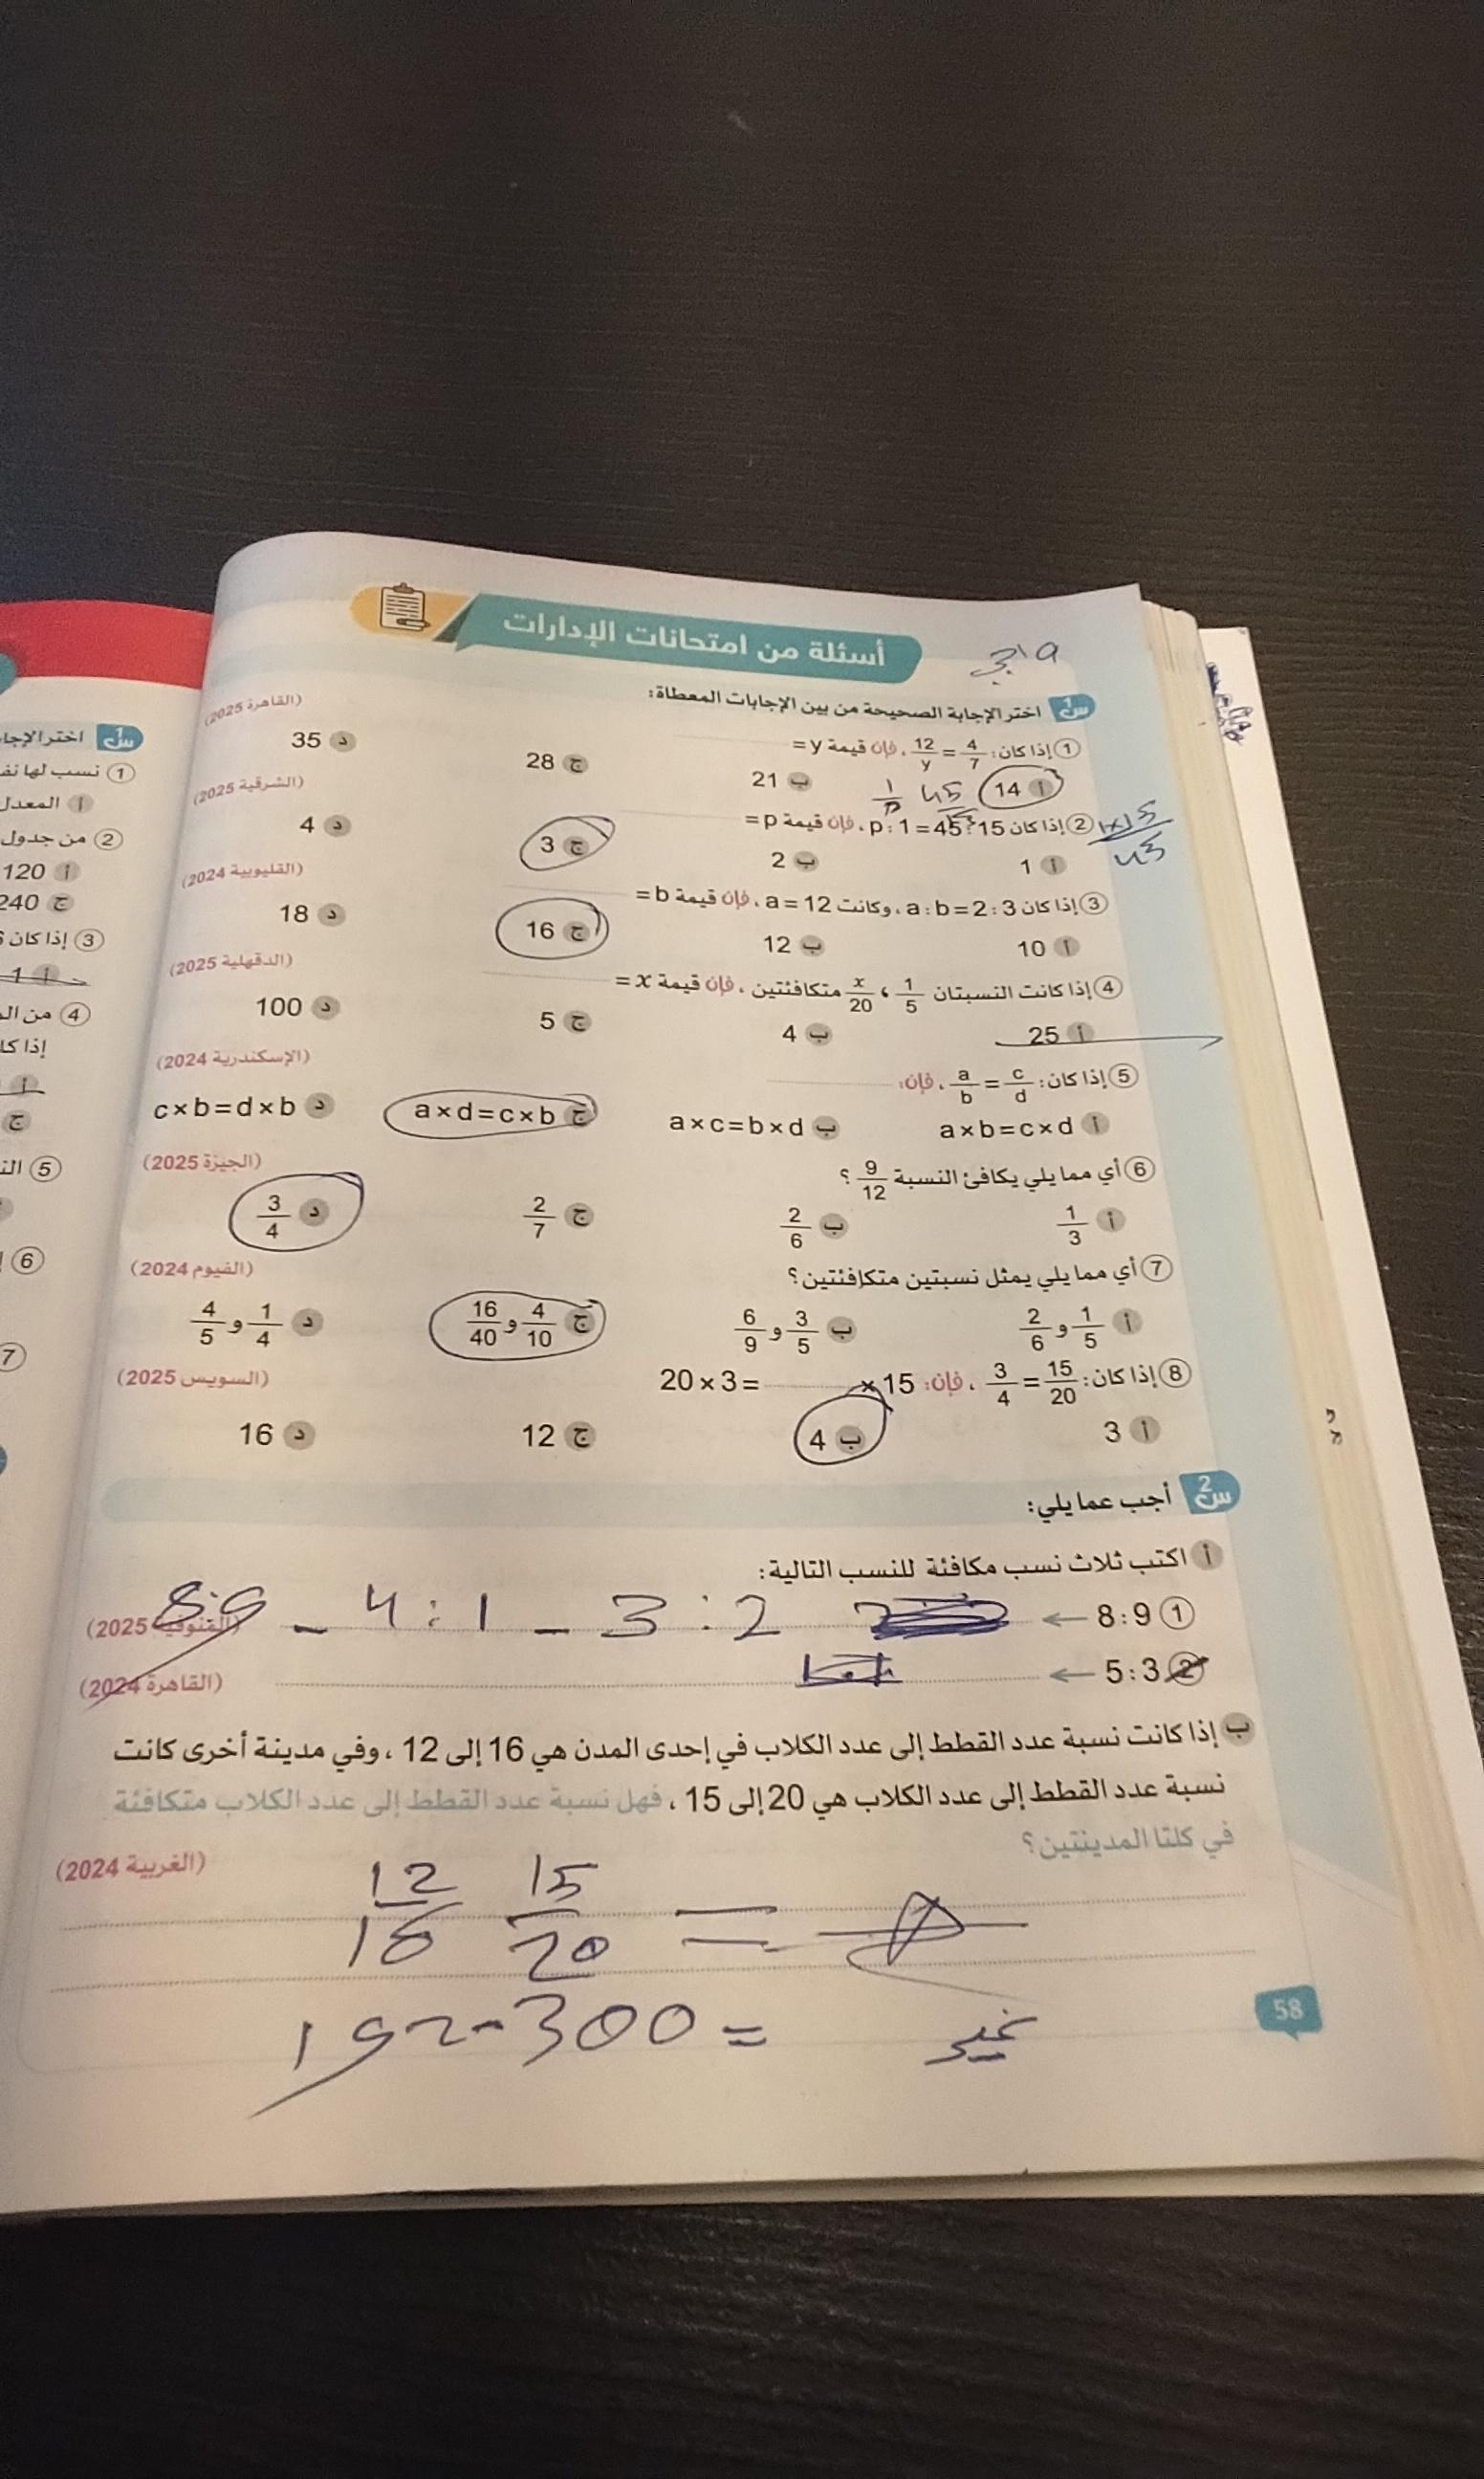 أسئلة من امتحانات الإدارات
س1 اختر الإجابة الصحيحة من بين الإجابات المعطاة:
① إذا كان: 4/7 = 12/y ، فإن قيمة y = (القاهرة 2025)
أ 14 ب 21 ج 28 د 35
② إذا كان 15 : 45 = 1 : p ، فإن قيمة p = (الشرقية 2025)
أ 1 ب 2 ج 3 د 4
③ إذا كان a : b = 2 : 3 ، وكانت a = 12 ، فإن قيمة b = (القليوبية 2024)
أ 10 ب 12 ج 16 د 18
④ إذا كانت النسبتان 1/5 ، x/20 متكافئتين ، فإن قيمة x = (الدقهلية 2025)
أ 25 ب 4 ج 5 د 100
⑤ إذا كان: a/b = c/d ، فإن: (الإسكندرية 2024)
أ a×b=c×d ب a×c=b×d ج a×d=c×b د c×b=d×b
⑥ أي مما يلي يكافئ النسبة 9/12 ؟ (الجيزة 2025)
أ 1/3 ب 2/6 ج 2/7 د 3/4
⑦ أي مما يلي يمثل نسبتين متكافئتين؟ (الفيوم 2024)
أ 1/5 و 2/6 ب 3/5 و 6/9 ج 4/10 و 16/40 د 1/4 و 4/5
⑧ إذا كان: 15/20 = 3/4 ، فإن: 15 × = 20 × 3 (السويس 2025)
أ 3 ب 4 ج 12 د 16
س2 أجب عما يلي:
أ اكتب ثلاث نسب مكافئة للنسب التالية:
① 8 : 9 ← 3 : 2 – 4 : 1 – (المنوفية 2025)
② 5 : 3 ← (القاهرة 2024)
ب إذا كانت نسبة عدد القطط إلى عدد الكلاب في إحدى المدن هي 16 إلى 12 ، وفي مدينة أخرى كانت
نسبة عدد القطط إلى عدد الكلاب هي 20 إلى 15 ، فهل نسبة عدد القطط إلى عدد الكلاب متكافئة
في كلتا المدينتين؟ (الغربية 2024)
12/16 15/20 =
192-300=
غير
58
س1 اختر الإجا
① نسب لها نف
أ المعدل
② من جدول
أ 120
ج 240
③ إذا كان
أ 1
④ من ال
إذا كا
أ
ج
⑤ الن
⑥
⑦